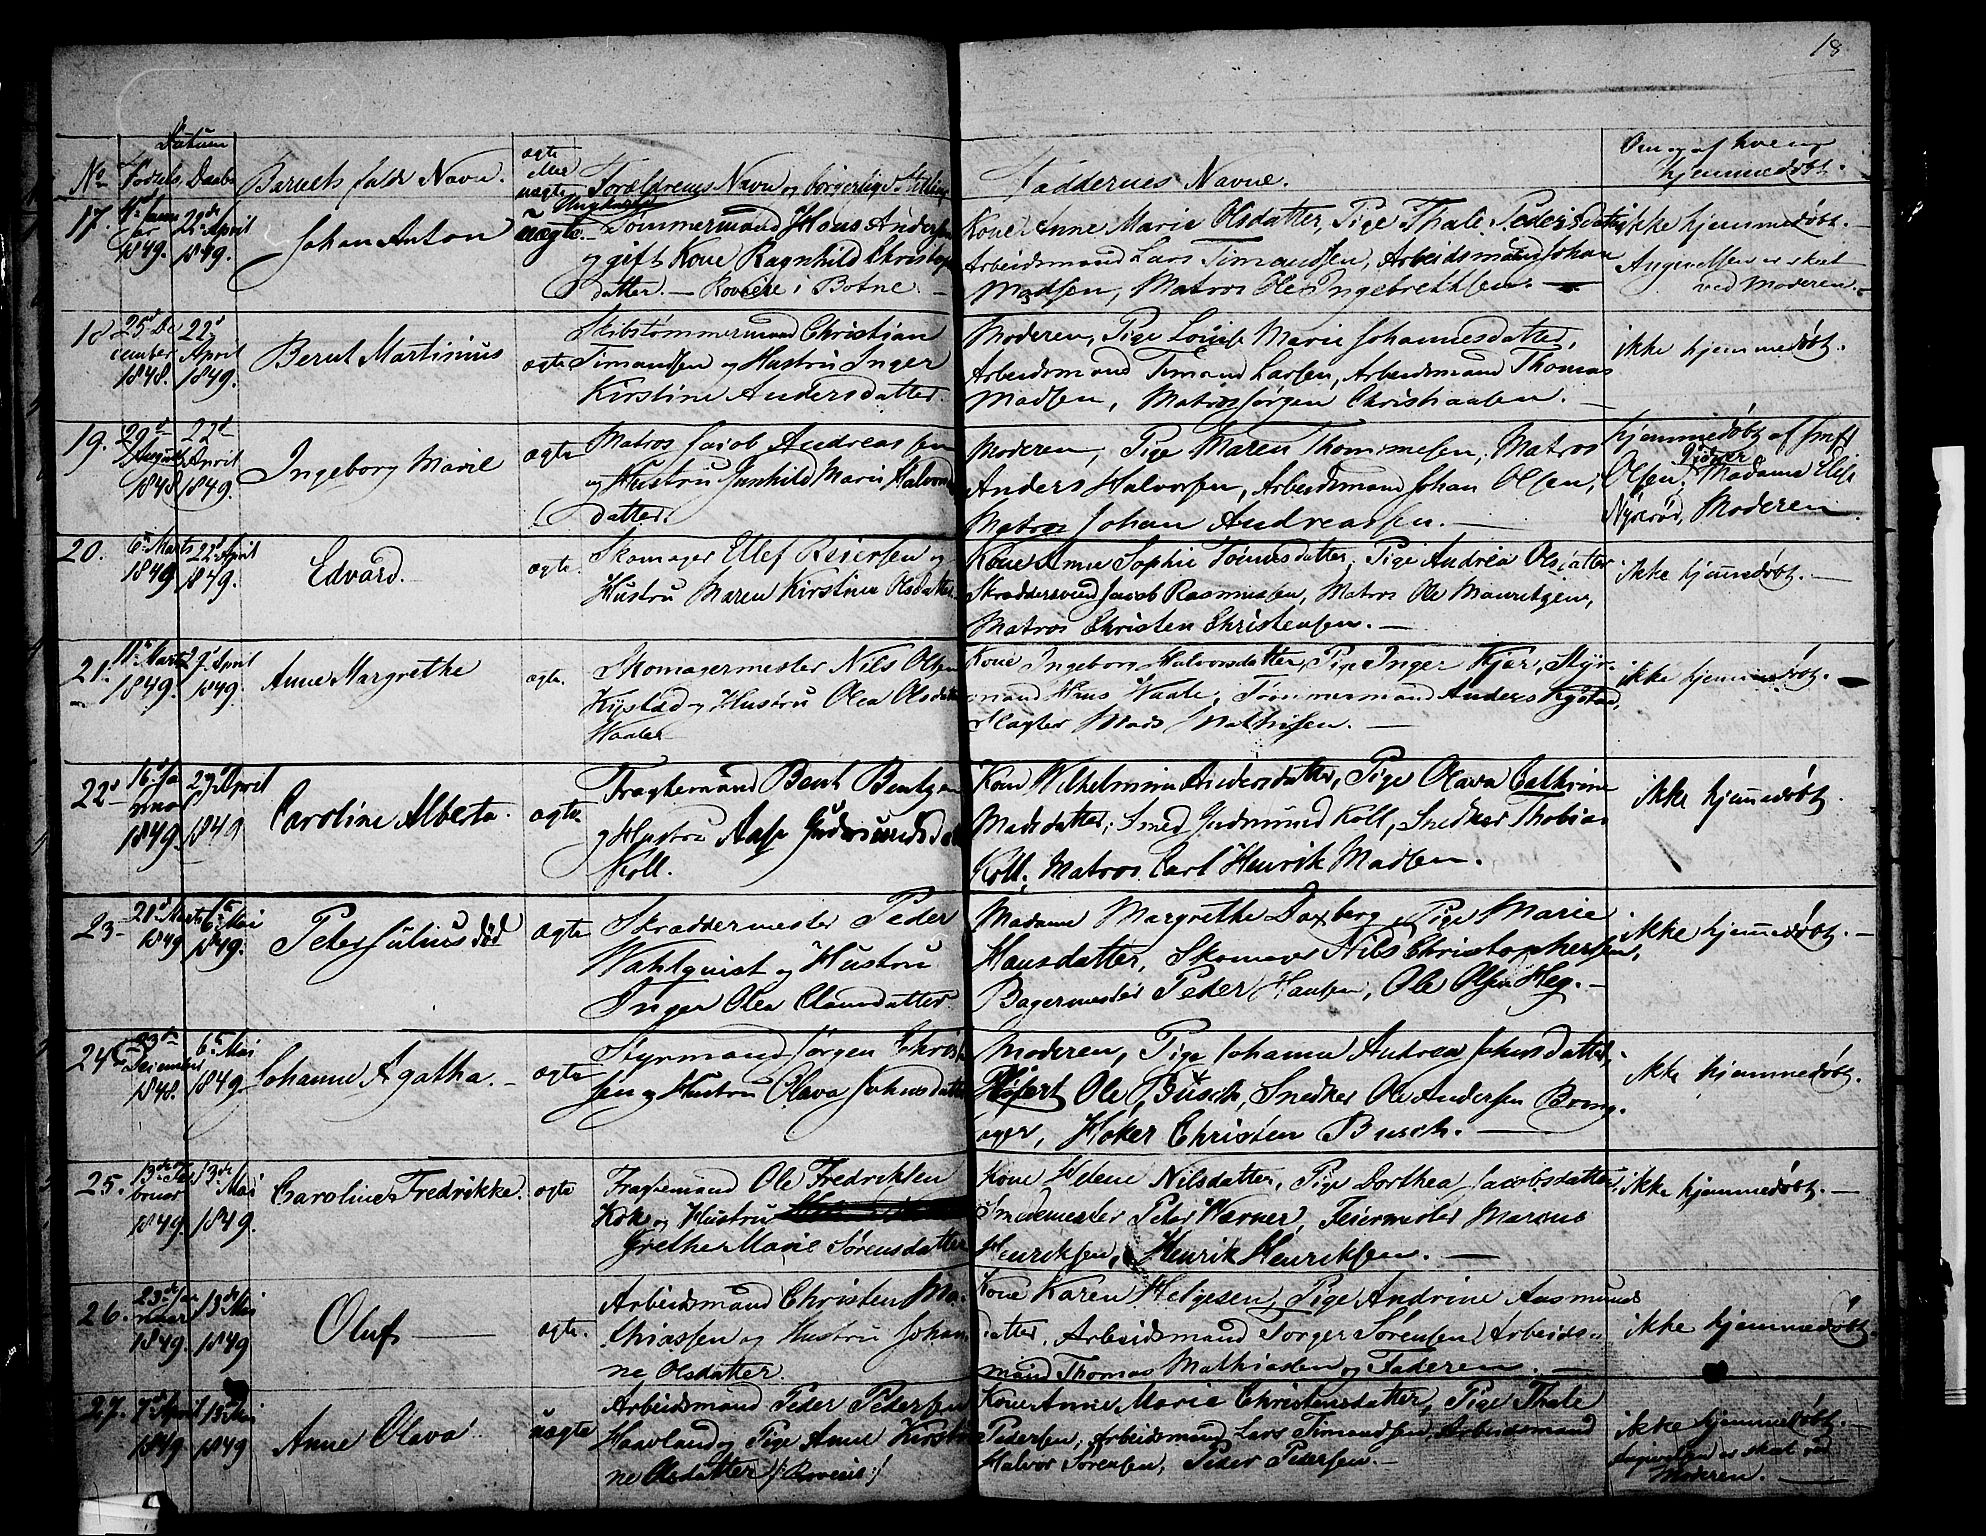 18
Datum
No Fødsels Daabs Barnets fulde Navn. ægte eller uægte Forældrenes Navn og borgerlige Stilling Faddernes Navne. Om og af hvem hjemmedøbt.
17. 1849. 22de April 1849. Johan Anton uægte. Ungkarl Tømmermand Hans Andersen
og gift Kone Ragnhild Christophers
datter. — Roveie i Botne. —
Kone Anne Marie Olsdatter, Pige Thale Pedersdatter,
Arbeidsmand Lars Timandsen, Arbeidsmand Johan
Madsen, Matros Ole Ingebrethsen. —
ikke hjemmedøbt. —
Angivelsen er skeet
ved Moderen. —
18 25de December 1848. 22d April 1849. Bernt Martinius ægte Skibstømmermand Christian
Timandsen og Hustru Inger
Kirstine Andersdatter.
Moderen, Pige Louise Marie Johannesdatter,
Arbeidsmand Timand Larsen, Arbeidsmand Thomas
Madsen, Matros Jørgen Christiansen. —
ikke hjemmedøbt.
19. 29de August 1848 22de April 1849. Ingeborg Marie ægte Matros Jacob Andreassen
og Hustru Gunhild Marie Halvors
datter.
Moderen, Pige Maren Thommesen, Matros
Anders Halvorsen, Arbeidsmand Johan Olsen,
Matros Johan Andreassen. —
hjemmedøbt af
Olsen, Madame Elise
Nyerød, Moderen.
20. 6te Marts 1849 22de April 1849. Edvard. ægte. Skomager Ellef Reiersen og
Hustru Maren Kirstine Olsdatter.
Kone Anne Sophie Tønnesdatter, Pige Andrea Olsdatter
Skræddersvend Jacob Rasmussen, Matros Ole Mauritzen,
Matros Christen Christensen. —
ikke hjemmedøbt. —
21. 11te Marts 1849. 29de April 1849. Anne Margrethe ægte. Skomagermester Nils Olsen
Kystad og Hustru Olea Olsdatter
Waale
Kone Ingeborg Halvorsdatter, Pige Inger Kjær, Styr-
mand Hans Waale, Tømmermand Anders Kystad,
Slagter Mads Mathisen. —
ikke hjemmedøbt. —
22 16de Januar 1849. 29de April 1849 Caroline Alberta. ægte Fragtemand Bent Bentzen
og Hustru Aase Gudmunds
Koll.
Kone Wilhelmine Andersdatter, Pige Olava Cathrine
Madsdatter, Smed Gudmund Koll, Snedker Thobias
Koll, Matros Carl Henrik Madsen.
ikke hjemmedøbt.
23 - Marts 1849 6te Mai 1849. Peter Julius død ægte Skræddermester Peder
Wahlquist og Hustru
Inger Olea Clausdatter
Madame Margrethe Daxberg, Pige Marie
Hansdatter, Skomager Nils Christophersen,
Bagermester Peder Hansen, Ole Olsen Heg. —
ikke hjemmedøbt. —
24 23de December 1848. 6te Mai 1849. Johanne Agatha. — ægte Styrmand Jørgen Christ
sen og Hustru Olava Johnsdatter
Moderen, Pige Johanne Andrea Johnsdatter,
Ole Busch, Snedker Ole Andersen Bring-
ager, Høker Christen Busch. —
ikke hjemmedøbt.
25. 13de Februar 1849. 13de Mai 1849. Caroline Fredrikke. ægte Fragtemand Ole Fredriksen
Kok og Hustru
Grethe Marie Sørensdatter
Kone Helene Nilsdatter, Pige Dorthea Jacobsdatter,
Smedemester Peter Værner, Feiermester Marcus
Henriksen, Henrik Henriksen. —
ikke hjemmedøbt. —
26. 23de Januar 1849. 13de Mai 1849 Oluf — ægte. Arbeidsmand Christen Ma-
thiassen og Hustru Johan
ne Olsdatter.
Kone Karen Helgesen, Pige Andrine Aasmunds
datter, Arbeidsmand Torger Sørensen, Arbeids-
mand Thomas Mathiassen og Faderen. —
ikke hjemmedøbt.
27. 7de April 1849 13de Mai 1849 Anne Olava uægte Arbeidsmand Peder Pedersen
Haavland og Pige Anne Kirsti
ne Olsdatter
Kone Anne Marie Christensdatter, Pige Thale
Pedersen, Arbeidsmand Lars Timandsen, Arbeidsmand
Halvor Sørensen, Peder Pedersen. —
ikke hjemmedøbt. —
Angivelsen er skeet ved
Moderen. —